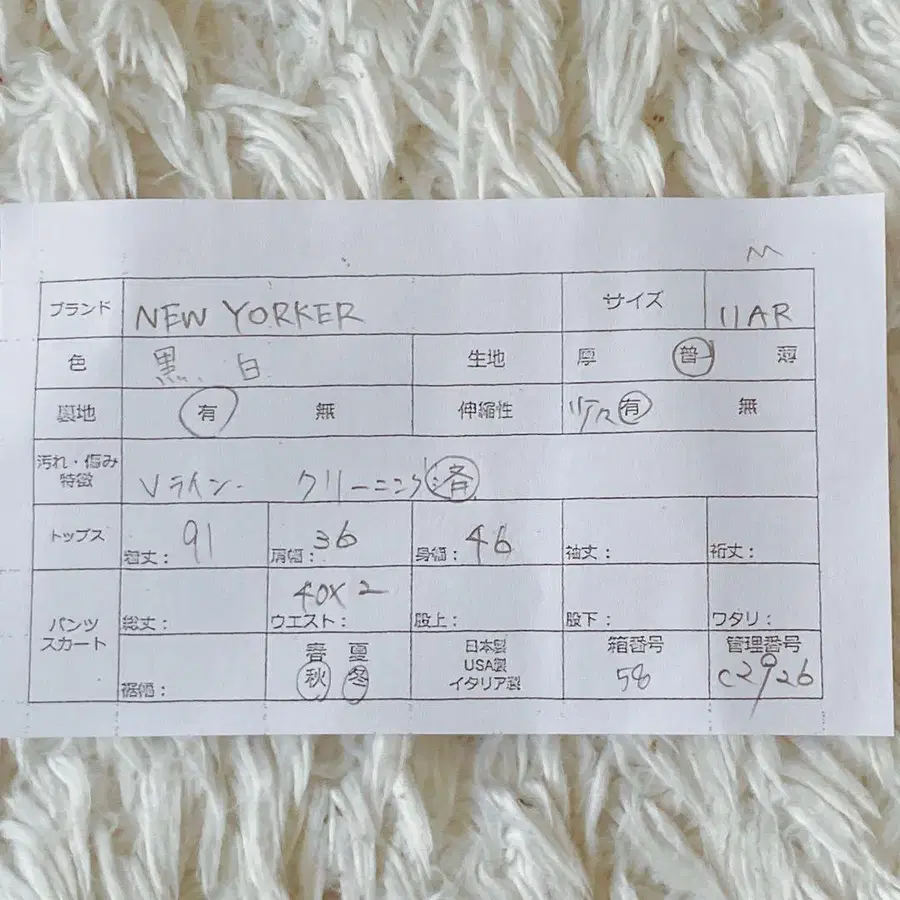 M
ブランド NEW YORKER サイズ 11AR
色 黒、白 生地 厚 普 薄
裏地 有 無 伸縮性 少々 有 無
汚れ・傷み
特徴 Vライン クリーニング 済
トップス 着丈: 91 肩幅: 36 身幅: 46 袖丈: 裄丈:
パンツ
スカート 総丈: ウエスト: 40×2 股上: 股下: ワタリ:
裾幅: 春 夏
秋 冬
日本製
USA製
イタリア製
箱番号
58
管理番号
C2926